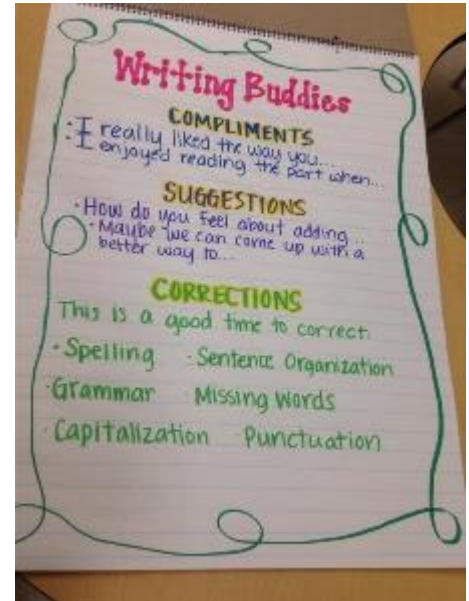 Writing Buddies
COMPLIMENTS
· I really liked the way you...
· I enjoyed reading the part when...
SUGGESTIONS
· How do you feel about adding...
· Maybe we can come up with a
better way to...
CORRECTIONS
This is a good time to correct:
· Spelling · Sentence Organization
· Grammar · Missing Words
· Capitalization · Punctuation